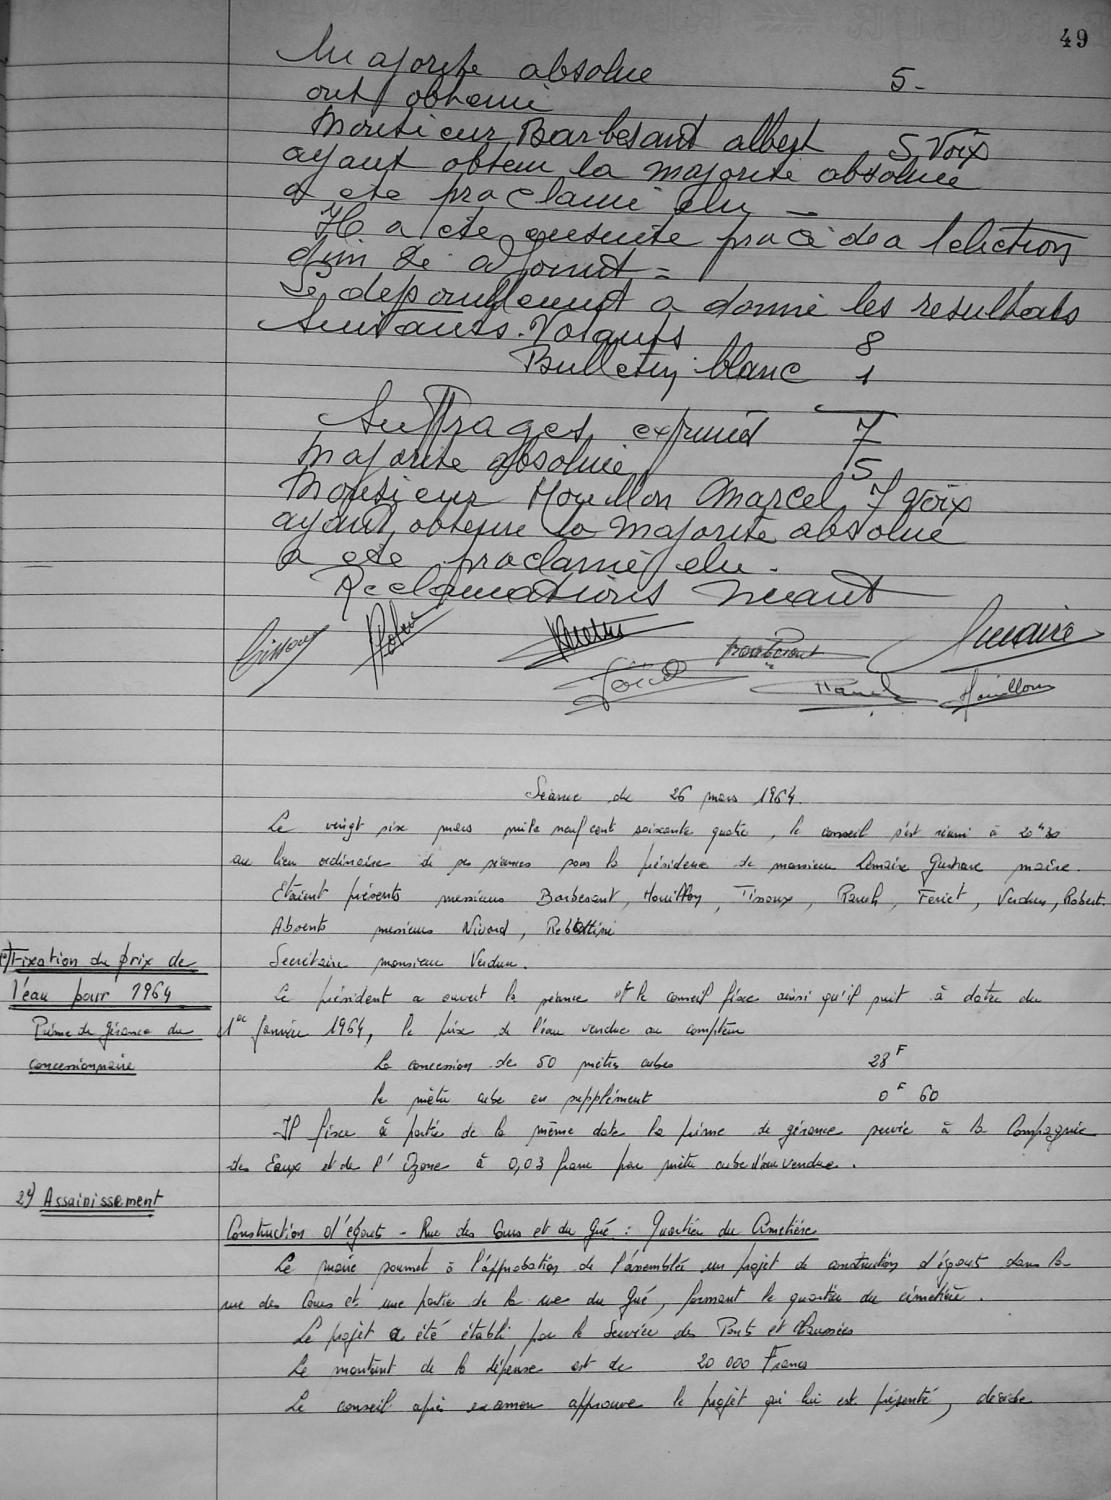 49
Majorité absolue 5-
ont obtenu
Monsieur Barbesant albert 5 Voix
ayant obtenu la majorité absolue
a été proclamé élu -
Il a été ensuite procédé a l'election
d'un 2e adjoint =
Le depouillement a donné les resultats
Suivants. Votants 8
Bulletin blanc 1
Suffrages exprimés 7
Majorite absolue 5
Monsieur Houillon Marcel 7 Voix
ayant obtenue la majorité absolue
a été proclamé elu.
Reclamations Neant
Robert
Barbesant
Lemaire
Houillon
Séance du 26 mars 1964.
Le vingt six mars mille neuf cent soixante quatre, le conseil s'est réuni à 20h30
au lieu ordinaire de ses séances sous la présidence de monsieur Lemaire Gustave maire.
Etaient présents messieurs Barbesant, Houillon, Tissoux, Rauch, Feriet, Verdun, Robert.
Absents messieurs Nivard, Rebottini
Secrétaire monsieur Verdun.
1°) Fixation du prix de
l'eau pour 1964
Prime de gérance du
concessionnaire
Le président a ouvert la séance et le conseil fixe ainsi qu'il suit à dater du
1er Janvier 1964, le prix de l'eau vendue au compteur
La concession de 50 mètres cubes 28F
le mètre cube en supplément 0F 60
Il fixe à partir de la même date la prime de gérance servie à la Compagnie
des Eaux et de l'Ozone à 0,03 franc par mètre cube d'eau vendue.
2°) Assainissement
Construction d'égouts - Rue des Cours et du Gué : Quartier du Cimetière
Le maire soumet à l'approbation de l'assemblée un projet de construction d'égouts dans la
rue des Cours et une partie de la rue du Gué, formant le quartier du cimetière.
Le projet a été établi par le Service des Ponts et Chaussées
Le montant de la dépense est de 20 000 Francs
Le conseil après examen approuve le projet qui lui est présenté, décide